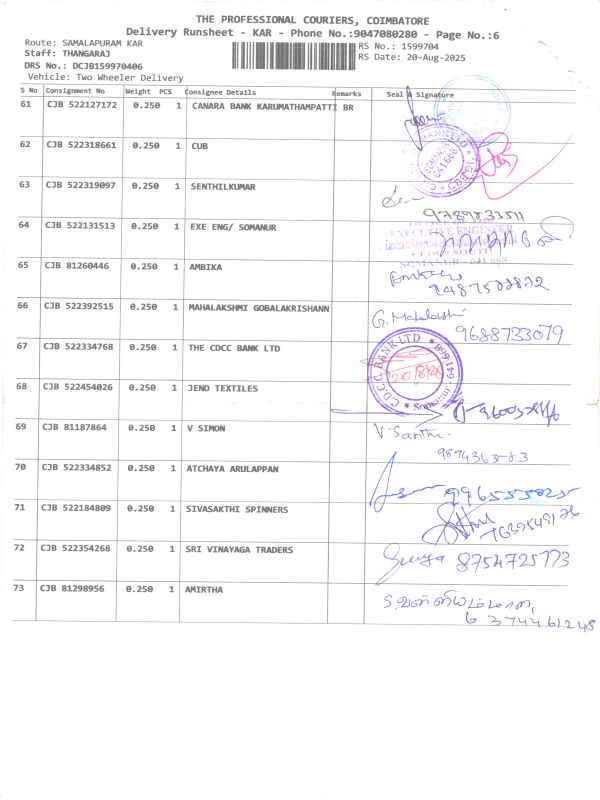 THE PROFESSIONAL COURIERS, COIMBATORE
Delivery Runsheet - KAR - Phone No.:9047080280 - Page No.:6
Route: SAMALAPURAM KAR
RS No.: 1599704
Staff: THANGARAJ
RS Date: 20-Aug-2025
DRS No.: DCJB159970406
Vehicle: Two Wheeler Delivery
S No Consignment No Weight PCS Consignee Details Remarks Seal & Signature
61 CJB 522127172 0.250 1 CANARA BANK KARUMATHAMPATTI BR
62 CJB 522318661 0.250 1 CUB
63 CJB 522319097 0.250 1 SENTHILKUMAR
64 CJB 522131513 0.250 1 EXE ENG/ SOMANUR
EXECUTIVE ENGINEER
65 CJB 81260446 0.250 1 AMBIKA
66 CJB 522392515 1 MAHALAKSHMI GOBALAKRISHANN
0.250
G. Mahalakshi
9688733079
67 CJB 522334768 0.250 1 THE CDCC BANK LTD
C.D.C.C. BANK LTD
20/8/25
68 CJB 522454026 0.250 1 JENO TEXTILES
69 CJB 81187864 0.250 1 V SIMON
V. Santhi
70 CJB 522334852 0.250 1 ATCHAYA ARULAPPAN
71 CJB 522184809 0.250 1 SIVASAKTHI SPINNERS
72 CJB 522354268 0.250 1 SRI VINAYAGA TRADERS
8754725773
73 CJB 81298956 0.250 1 AMIRTHA
6374461248